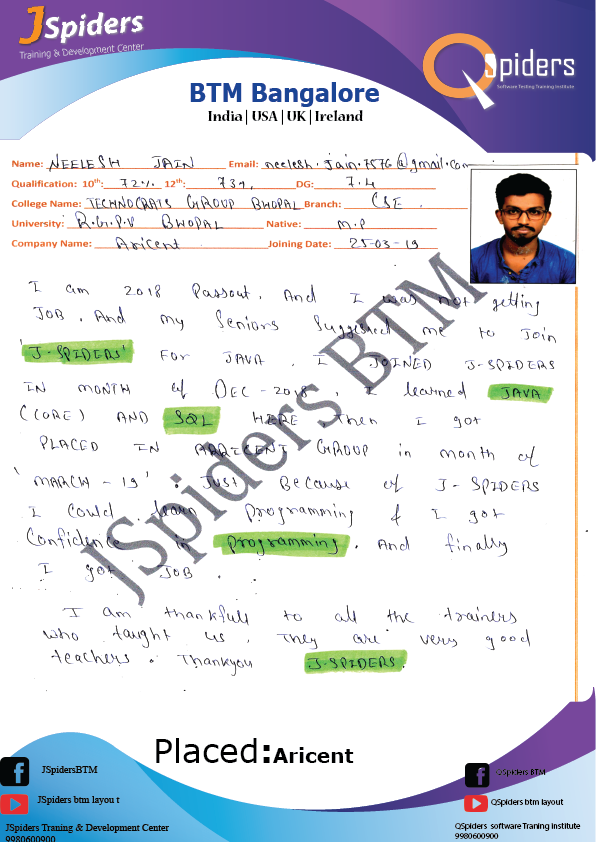 JSpiders
Training & Development Center
QSpiders
Software Testing Training Institute
BTM Bangalore
India | USA | UK | Ireland
Name: NEELESH JAIN Email: neelesh.jain.7576@gmail.com
Qualification: 10th: 72% 12th: 73%, DG: 7.4
College Name: TECHNOCRATS GROUP BHOPAL Branch: CSE.
University: R.G.P.V BHOPAL Native: M.P
Company Name: Aricent Joining Date: 25-03-19
I am 2018 Passout. And I was not getting
JOB. And my Seniors Suggested me to Join
'J-SPIDERS' FOR JAVA. I JOINED J-SPIDERS
IN MONTH of DEC-2018. I learned JAVA
(CORE) AND SQL HERE. Then I got
PLACED IN ARRICENT GROUP in month of
'MARCH-19'. JUST Because of J-SPIDERS
I could learn programming & I got
Confidence in programming. And finally
I got JOB.
I am thankfull to all the trainers
who taught us. They are very good
teachers. Thankyou J-SPIDERS.
JSpiders BTM
Placed:Aricent
JSpidersBTM
QSpiders BTM
JSpiders btm layou t
QSpiders btm layout
JSpiders Traning & Development Center
9980600900
QSpiders software Traning institute
9980600900